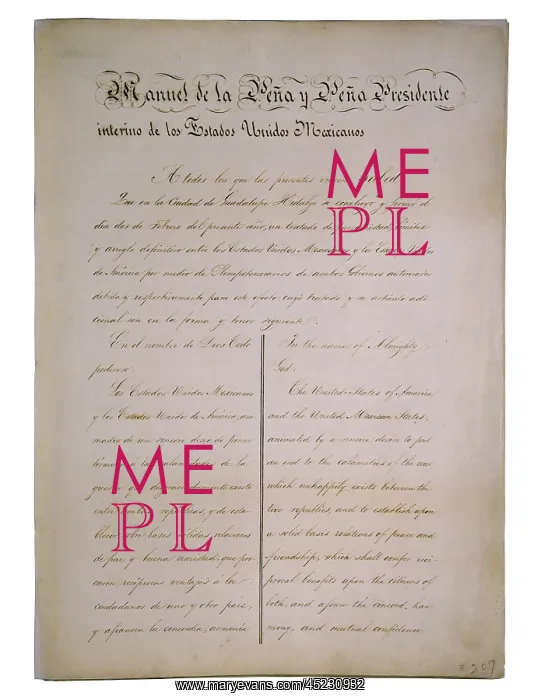 Manuel de la Peña y Peña Presidente
interino de los Estados Unidos Mexicanos
A todos los que las presentes
Que en la Ciudad de Guadalupe Hidalgo se concluyó y firmó el
día dos de Febrero del presente año, un tratado de
y arreglo definitivo entre los Estados Unidos Mexicanos y los Estados
de América por medio de Plenipotenciarios de ambos Gobiernos autorizados
debida y respectivamente para este efecto, cuyo tratado y su artículo adi-
cional son en la forma y tenor siguiente.
En el nombre de Dios Todo
poderoso:
Los Estados Unidos Mexicanos
y los Estados Unidos de América, ani
mados de un sincero deseo de poner
término a las calamidades de la
guerra que desgraciadamente existe
entre ambas repúblicas, y de esta
blecer sobre bases sólidas relaciones
de paz y buena amistad, que pro
curen recíprocas ventajas a los
ciudadanos de uno y otro país,
y afiancen la concordia, armonía
In the name of Almighty
God:
The United States of America
and the United Mexican States,
animated by a sincere desire to put
an end to the calamities of the war
which unhappily exists between the
two republics, and to establish upon
a solid basis relations of peace and
friendship, which shall confer reci-
procal benefits upon the citizens of
both, and assure the concord, har
mony, and mutual confidence
ME
PL
ME
PL
# 207
www.maryevans.com/45230932